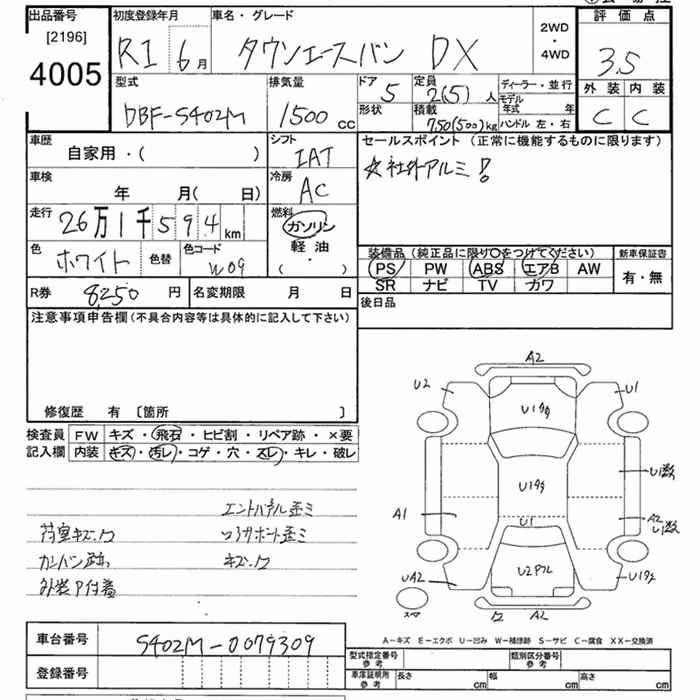 出品番号 初度登録年月 車名・グレード 2WD・4WD 評価点
[2196]
4005
R1 6月 タウンエースバン DX 3.5
型式 排気量 ドア 定員 ディーラー・並行 外装 内装
DBF-S402M 1500 cc 5 2(5)人 モデル年式 年 C C
形状 積載 750(500)kg ハンドル 左・右
車歴 シフト セールスポイント (正常に機能するものに限ります)
自家用・( ) IAT ☆社外アルミ!
車検 冷房
年 月( 日) AC
走行 燃料
26万1千594km ガソリン
軽油
・( )
色 色替 色コード
ホワイト W09
装備品(純正品に限り〇をつけてください) 新車保証書
PS PW ABS エアB AW 有・無
SR ナビ TV カワ
R券 8250円 名変期限 月 日 後日品
注意事項申告欄(不具合内容等は具体的に記入して下さい)
修復歴 有 [箇所 ]
検査員 FW キズ・飛石・ヒビ割・リペア跡・×要
記入欄 内装 キズ・汚レ・コゲ・穴・スレ・キレ・破レ
荷室キズ、ワ
コアサポート歪ミ
キズ、ワ
カンバン跡
外装P付着
A2
U2 U1
U1
U1
U1数
A1 A2
U1数
U1
UA2
A2
A-キズ E-エクボ U-凹ミ W-補修跡 S-サビ C-腐食 XX-交換済
車台番号 S402M-0079309
登録番号
型式指定番号 参考 類別区分番号 参考
車庫証明用 参考 長さ cm 幅 cm 高さ cm